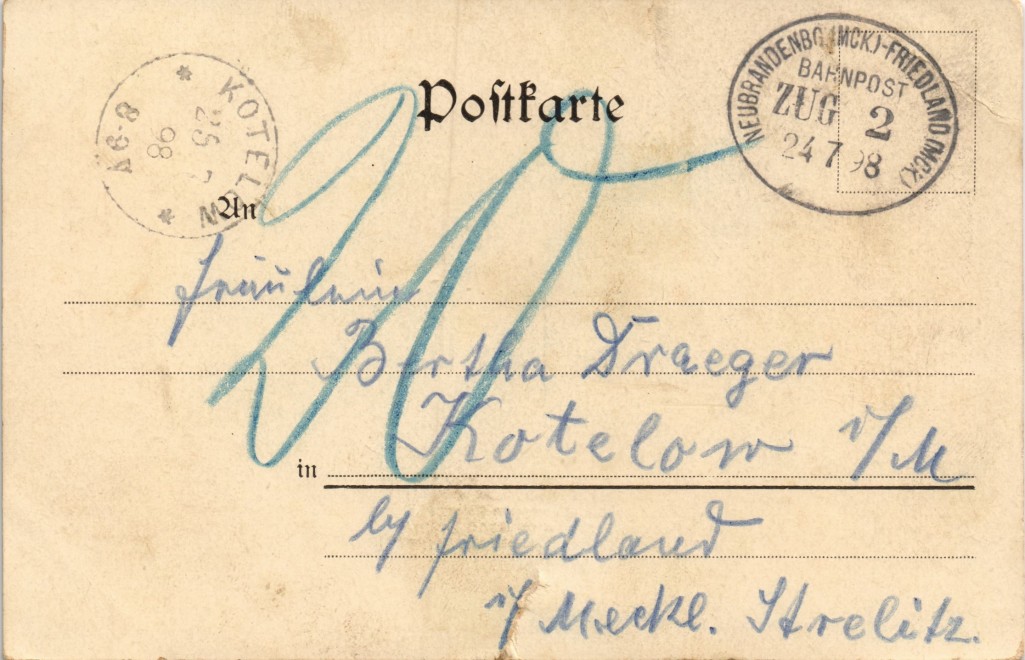 Postkarte
NEUBRANDENBG (MCK)-FRIEDLAND (MCK)
BAHNPOST
ZUG 2
24 7 98
KOTELOW
25 7
98
8-9V
20
An
Fräulein
Bertha Draeger
in Kotelow i/M
by Friedland
i/ Meckl. Strelitz.